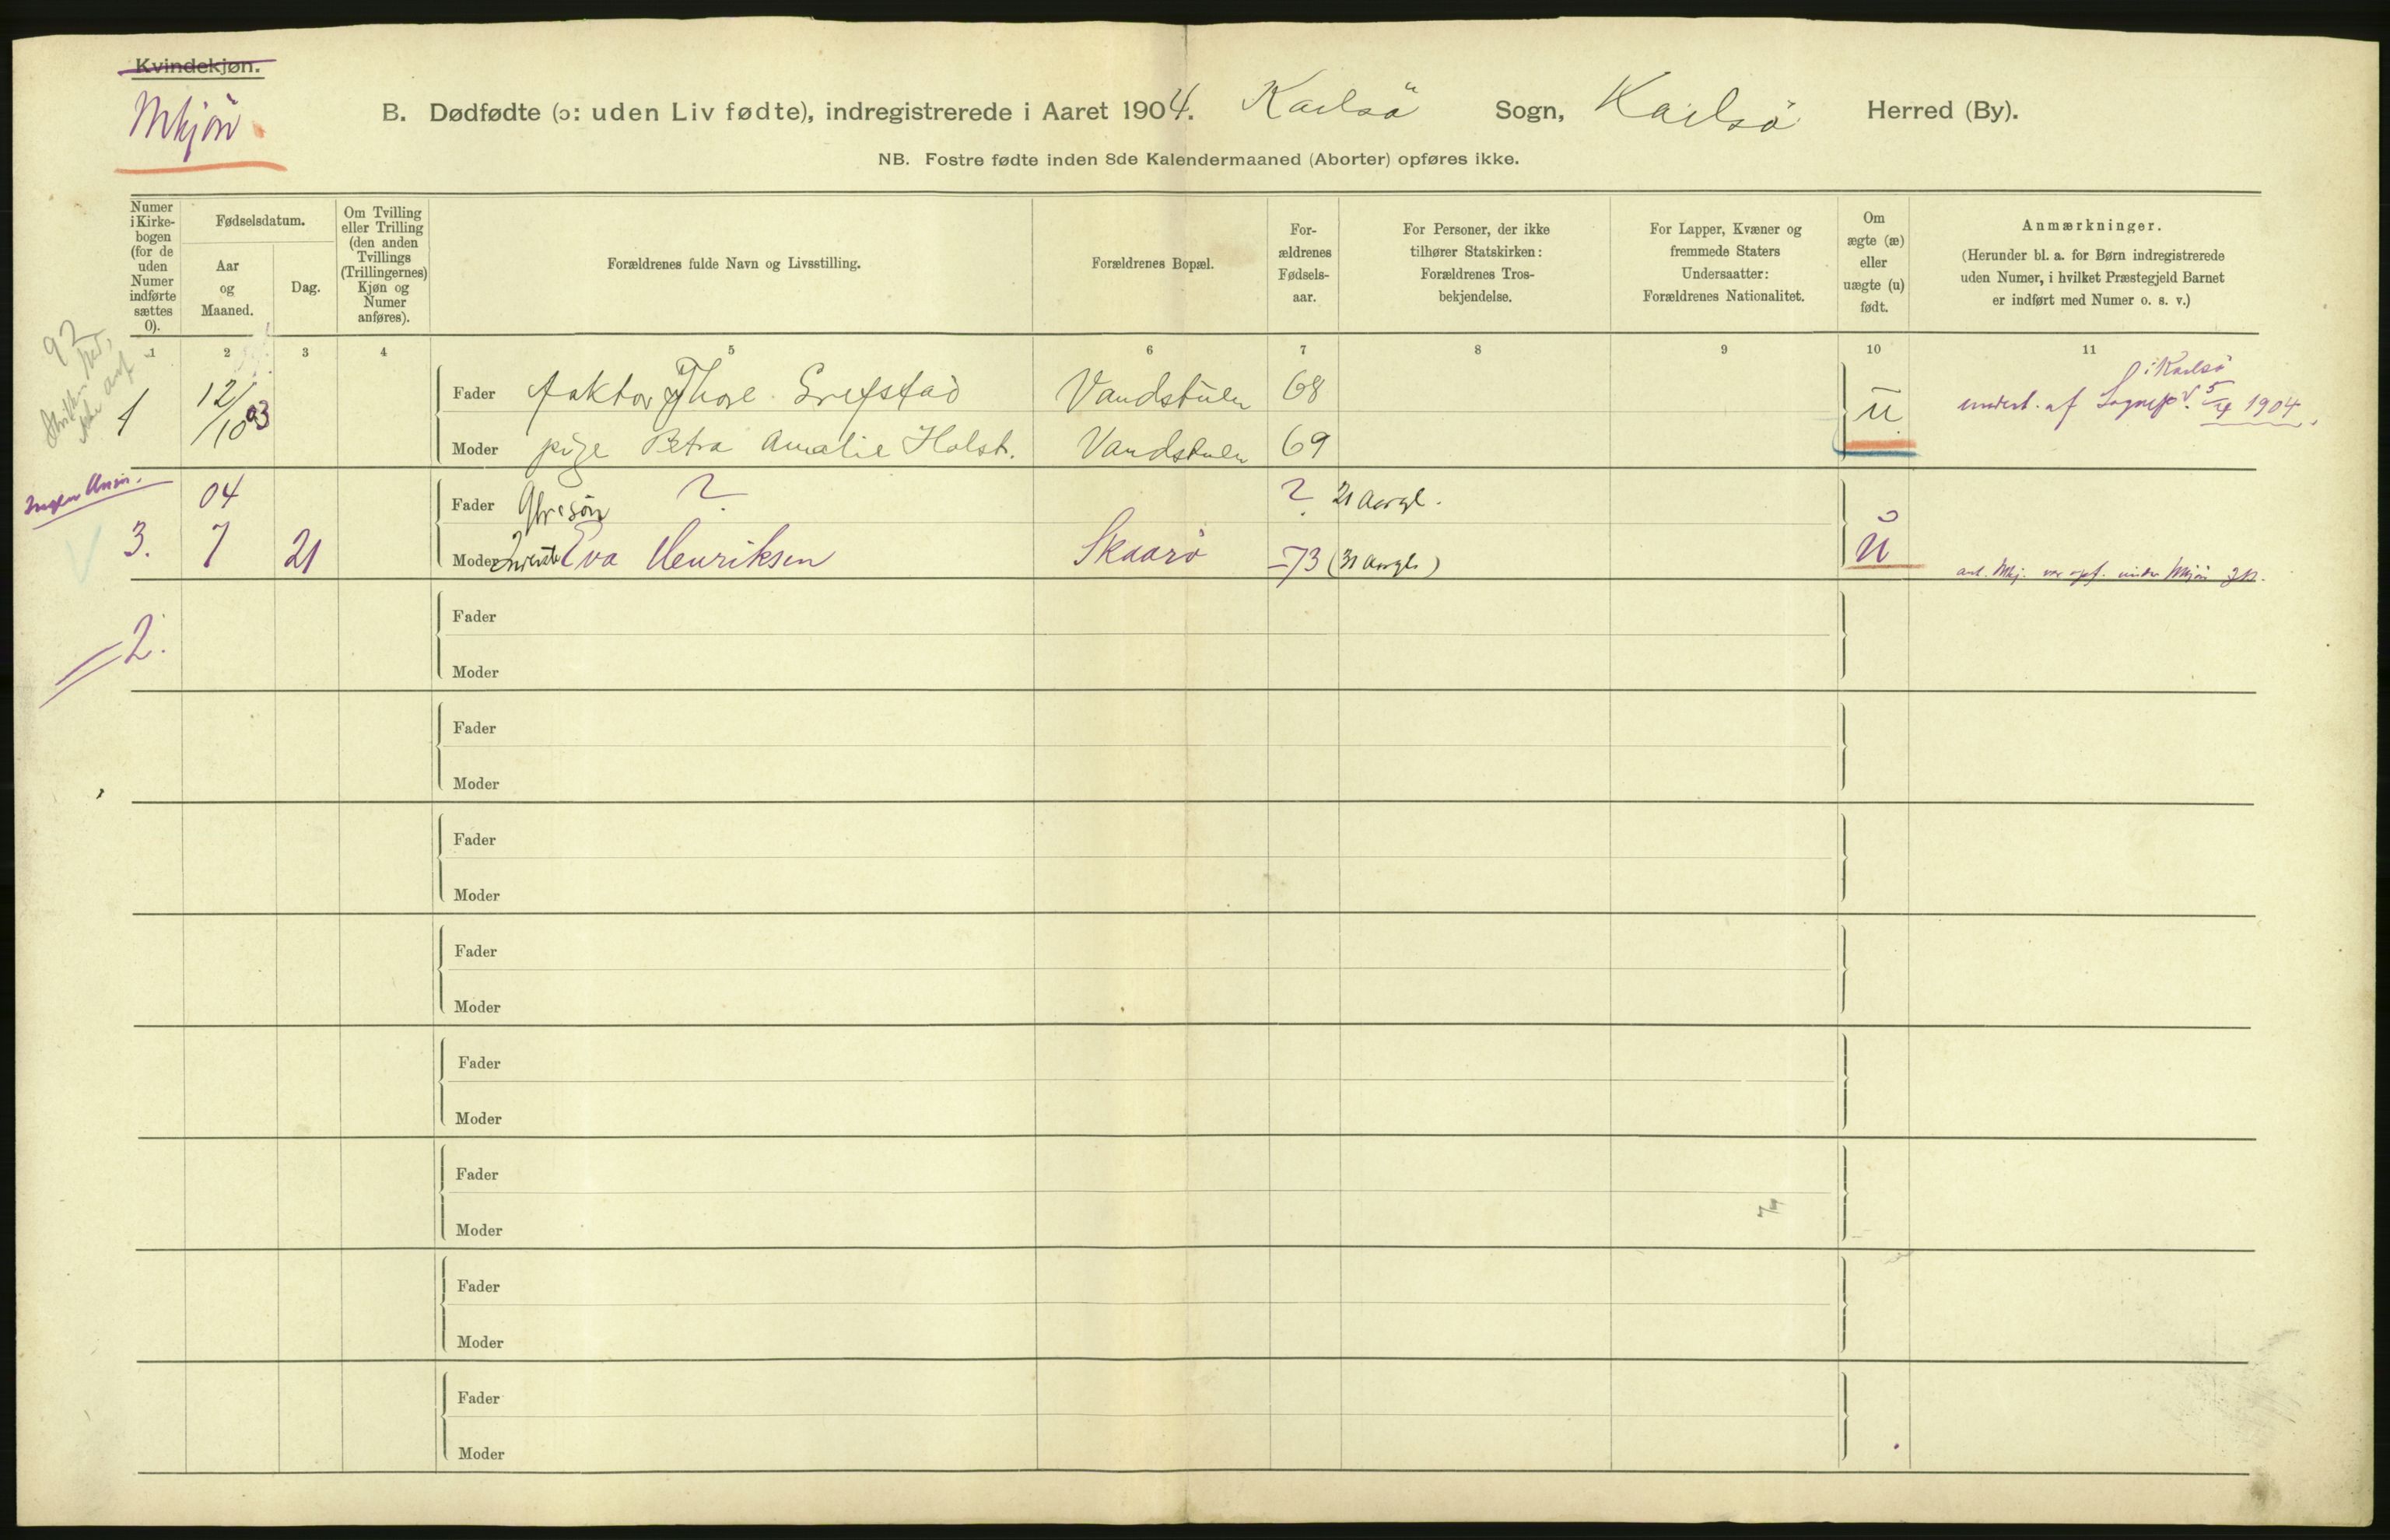 Kvindekjøn.
Mkjøn
B. Dødfødte (ɔ: uden Liv fødte), indregistrerede i Aaret 1904. Karlsö Sogn, Karlsö Herred (By).
NB. Fostre fødte inden 8de Kalendermaaned (Aborter) opføres ikke.
Numer i Kirke- bogen (for de uden Numer indførte sættes 0).
Fødselsdatum.
Aar og Maaned.
Dag.
Om Tvilling eller Trilling (den anden Tvillings (Trillingernes) Kjøn og Numer anføres).
Forældrenes fulde Navn og Livsstilling.
Forældrenes Bopæl.
For- ældrenes Fødsels- aar.
For Personer, der ikke tilhører Statskirken: Forældrenes Tros- bekjendelse.
For Lapper, Kvæner og fremmede Staters Undersaatter: Forældrenes Nationalitet.
Om ægte (æ) eller uægte (u) født.
Anmærkninger.
(Herunder bl. a. for Børn indregistrerede uden Numer, i hvilket Præstegjeld Barnet er indført med Numer o. s. v.)
1 2 3 4 5 6 7 8 9 10 11
92
1 12/10 03
Fader Faktor Thore Vandstuen 68
Moder pige Petra Amalie Holst. Vandstuen 69
u
i Karlsö
undert. af Sognep. 5/4 1904.
04
3. 7 21
Fader Gbrsön ? ? 21 Aargl.
Moder Eva Henriksen Skaarö -73 (31 Aargl.)
u
2.
Fader
Moder
Fader
Moder
Fader
Moder
Fader
Moder
Fader
Moder
Fader
Moder
Fader
Moder
Fader
Moder